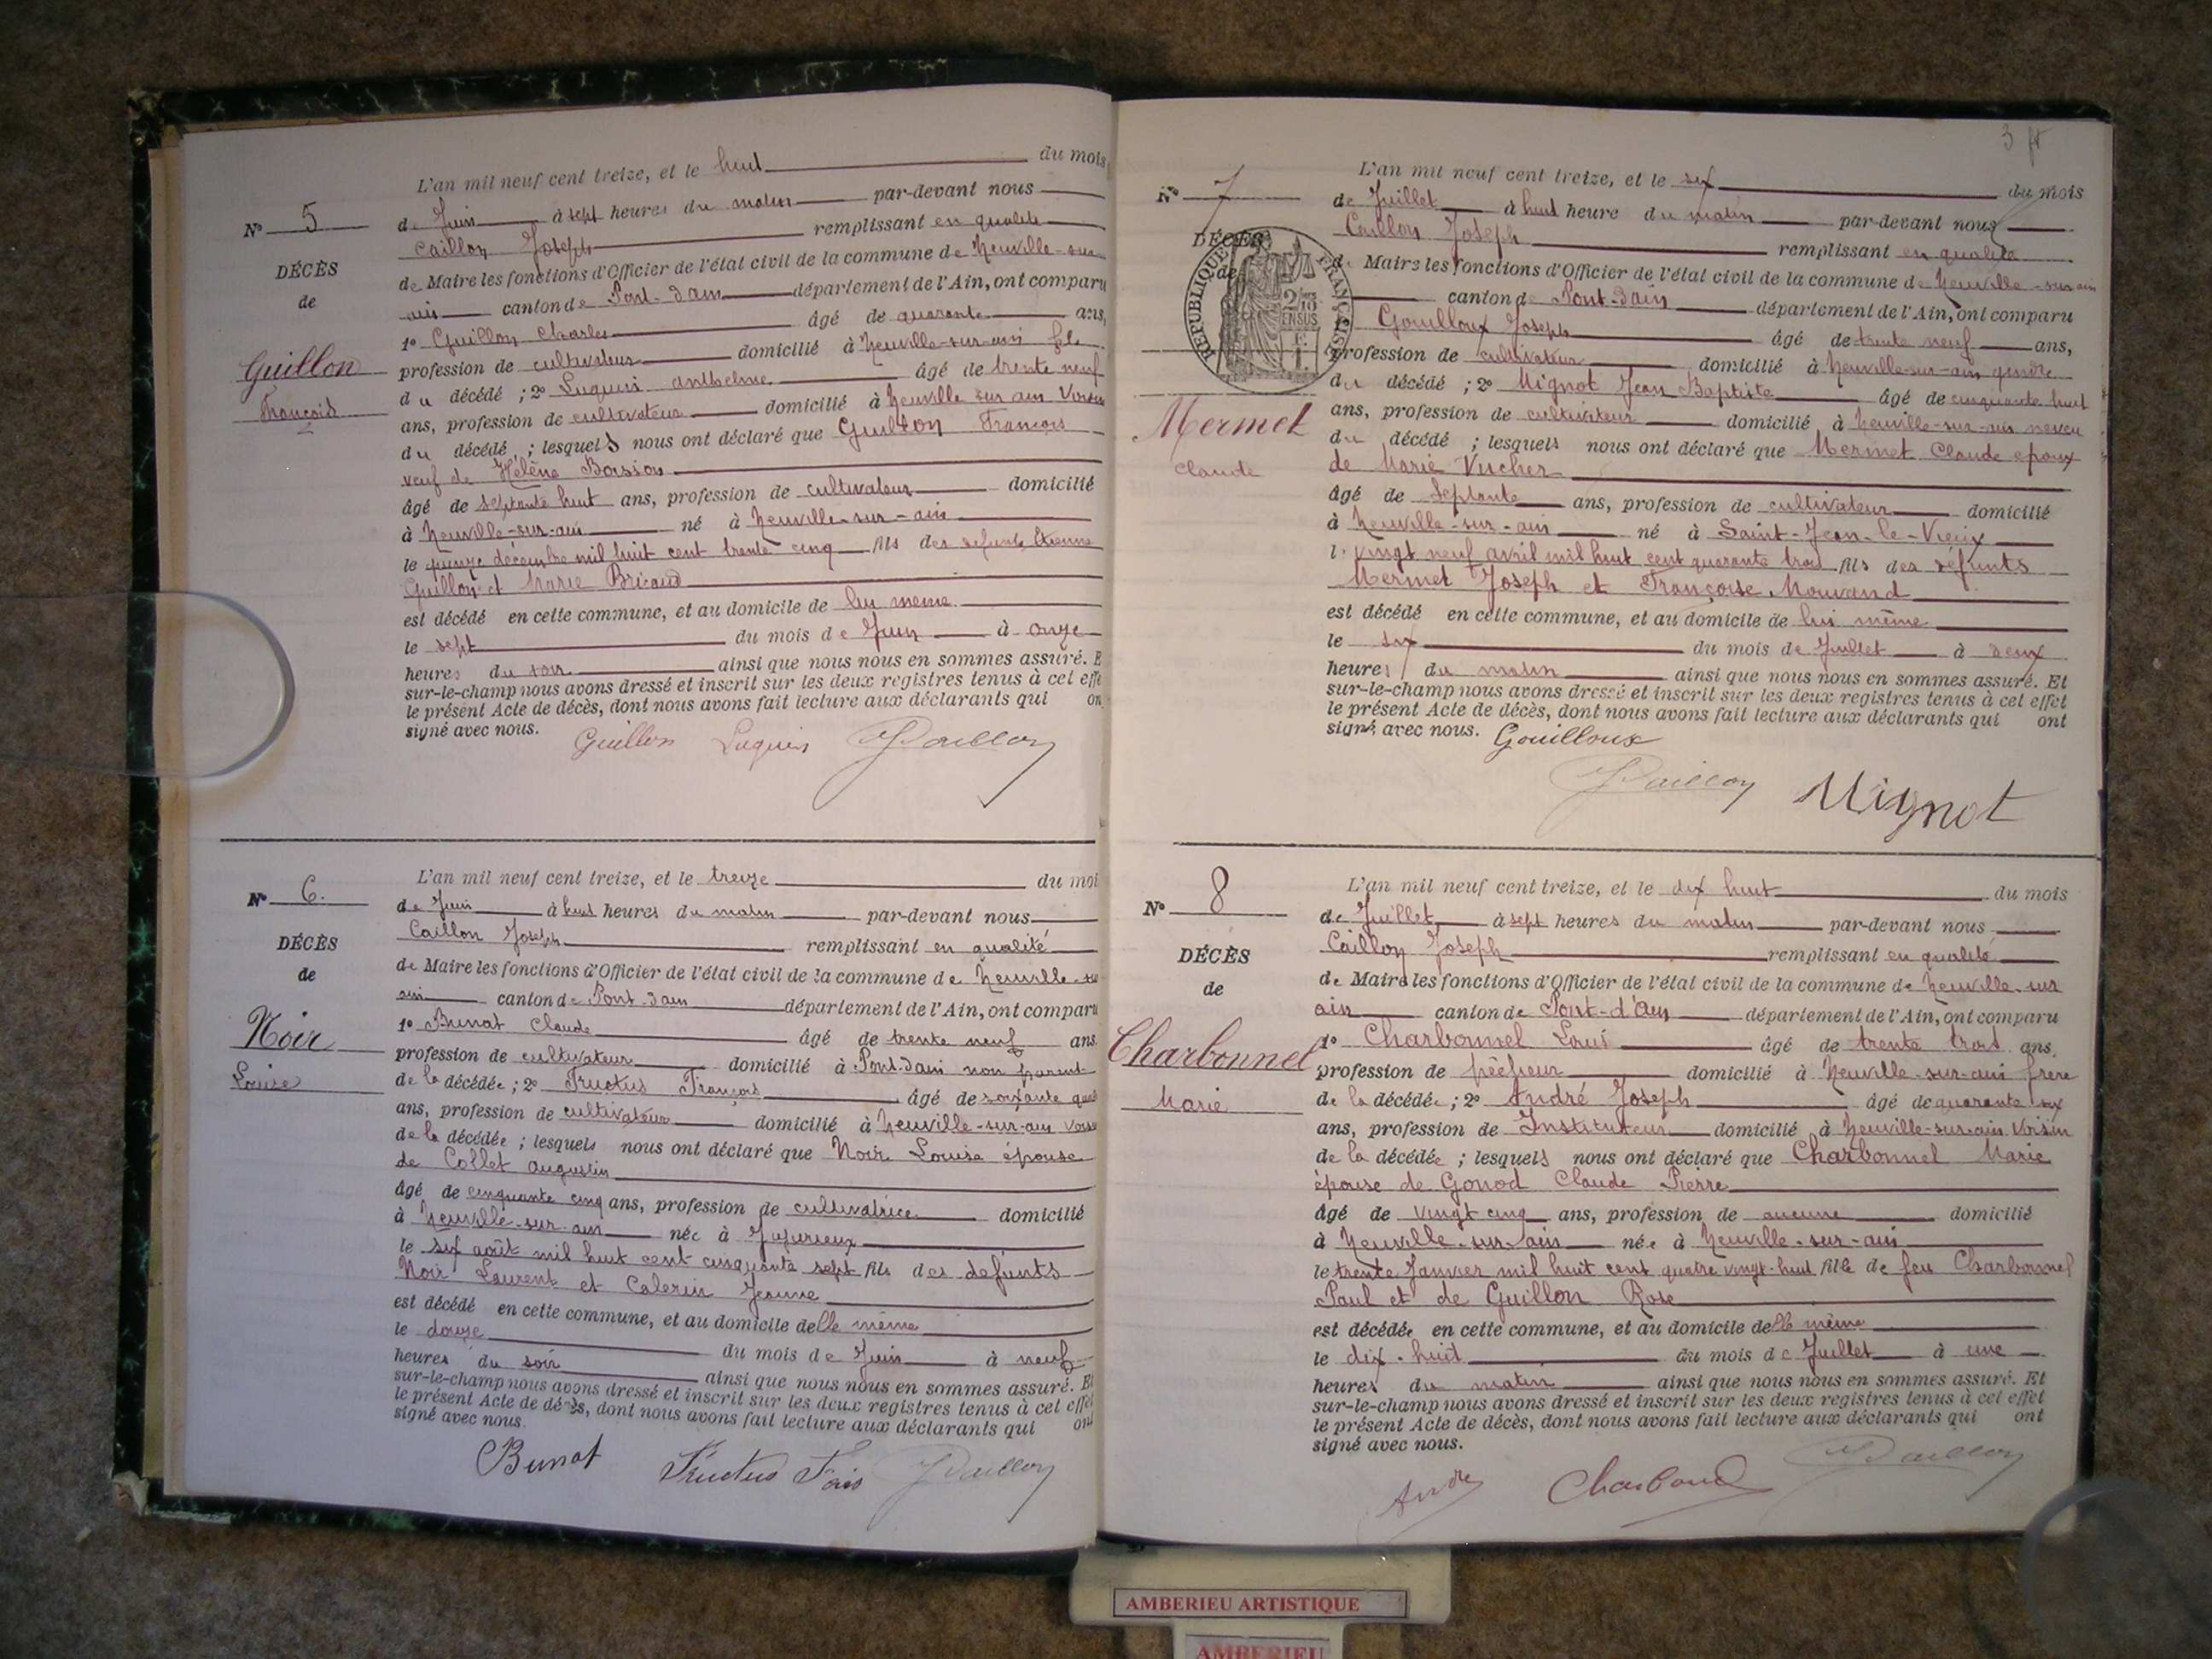 L'an mil neuf cent treize, et le huit du mois
N° 5 de Juin à sept heures du matin par-devant nous
Caillon Joseph remplissant en qualité
DÉCÈS de Maire les fonctions d'Officier de l'état civil de la commune de Neuville-sur
de ain canton de Pont-d'ain département de l'Ain, ont comparu
1° Guillon Charles âgé de quarante ans,
Guillon profession de cultivateur domicilié à Neuville-sur-ain fils
François du décédé ; 2° Luquin anthelme âgé de trente neuf
ans, profession de cultivateur domicilié à Neuville sur ain Voisin
du décédé ; lesquels nous ont déclaré que Guillon François
veuf de Hélène Boission
âgé de septante huit ans, profession de cultivateur domicilié
à Neuville-sur-ain né à Neuville-sur-ain
le quinze décembre mil huit cent trente cinq fils des défunts Etienne
Guillon et Marie Bricaud
est décédé en cette commune, et au domicile de lui même
le sept du mois de Juin à onze
heures du soir ainsi que nous nous en sommes assuré. E
sur-le-champ nous avons dressé et inscrit sur les deux registres tenus à cet effe
le présent Acte de décès, dont nous avons fait lecture aux déclarants qui on
signé avec nous.
Guillon Luquin JCaillon
L'an mil neuf cent treize, et le treize du moi
N° 6. de Juin à huit heures du matin par-devant nous
Caillon Joseph remplissant en qualité
DÉCÈS de Maire les fonctions d'Officier de l'état civil de la commune de Neuville-su
de ain canton de Pont-d'ain département de l'Ain, ont comparu
1° Bunat Claude âgé de trente neuf ans
Noir profession de cultivateur domicilié à Pont-d'ain non parent
Louise de la décédée ; 2° Fructus François âgé de soixante
ans, profession de cultivateur domicilié à Neuville-sur-ain
de la décédée ; lesquels nous ont déclaré que Noir Louise épouse
de Collet augustin
âgé de cinquante cinq ans, profession de cultivatrice domicilié
à Neuville-sur-ain née à Jujurieux
le six août mil huit cent cinquante sept fils des défunts
Noir Laurent et Calerin Jeanne
est décédé en cette commune, et au domicile delle même
le douze du mois de Juin à neuf
heures du soir ainsi que nous nous en sommes assuré. Et
sur-le-champ nous avons dressé et inscrit sur les deux registres tenus à cet effet
le présent Acte de décès, dont nous avons fait lecture aux déclarants qui ont
signé avec nous.
Bunat Fructus Fois JCaillon
3 ft
L'an mil neuf cent treize, et le six du mois
N° 7 de Juillet à huit heure du matin par-devant nous
Caillon Joseph remplissant en qualité
DÉCÈS de Maire les fonctions d'Officier de l'état civil de la commune de Neuville-sur ain
de canton de Pont-d'ain département de l'Ain, ont comparu
RÉPUBLIQUE FRANÇAISE
2/10 EN SUS
Gouilloux Joseph âgé de trente neuf ans,
profession de cultivateur domicilié à Neuville-sur-ain gendre
du décédé ; 2° Mignot Jean Baptiste âgé de cinquante huit
Mermet ans, profession de cultivateur domicilié à Neuville-sur-ain neveu
du décédé ; lesquels nous ont déclaré que Mermet Claude époux
Claude de Marie Vucher
âgé de Septante ans, profession de cultivateur domicilié
à Neuville-sur-ain né à Saint-Jean-le-Vieux
le vingt neuf avril mil huit cent quarante trois fils des défunts
Mermet Joseph et Françoise Mouvand
est décédé en cette commune, et au domicile de lui même
le six du mois de Juillet à deux
heures du matin ainsi que nous nous en sommes assuré. Et
sur-le-champ nous avons dressé et inscrit sur les deux registres tenus à cet effet
le présent Acte de décès, dont nous avons fait lecture aux déclarants qui ont
signé avec nous. Gouilloux
JCaillon Mignot
L'an mil neuf cent treize, et le dix huit du mois
N° 8 de Juillet à sept heures du matin par-devant nous
Caillon Joseph remplissant en qualité
DÉCÈS de Maire les fonctions d'Officier de l'état civil de la commune de Neuville-sur
de ain canton de Pont-d'Ain département de l'Ain, ont comparu
1° Charbonnel Louis âgé de trente trois ans,
Charbonnel profession de pêcheur domicilié à Neuville-sur-ain frère
Marie de la décédée ; 2° André Joseph âgé de quarante six
ans, profession de Instituteur domicilié à Neuville-sur-ain Voisin
de la décédée ; lesquels nous ont déclaré que Charbonnel Marie
épouse de Gonod Claude Pierre
âgé de vingt cinq ans, profession de aucune domicilié
à Neuville-sur-ain née à Neuville-sur-ain
le trente Janvier mil huit cent quatre vingt-huit fille de feu Charbonnel
Paul et de Guillon Rose
est décédée en cette commune, et au domicile delle même
le dix-huit du mois de Juillet à une
heures du matin ainsi que nous nous en sommes assuré. Et
sur-le-champ nous avons dressé et inscrit sur les deux registres tenus à cet effet
le présent Acte de décès, dont nous avons fait lecture aux déclarants qui ont
signé avec nous.
André JCaillon
AMBERIEU ARTISTIQUE
AMBERIEU